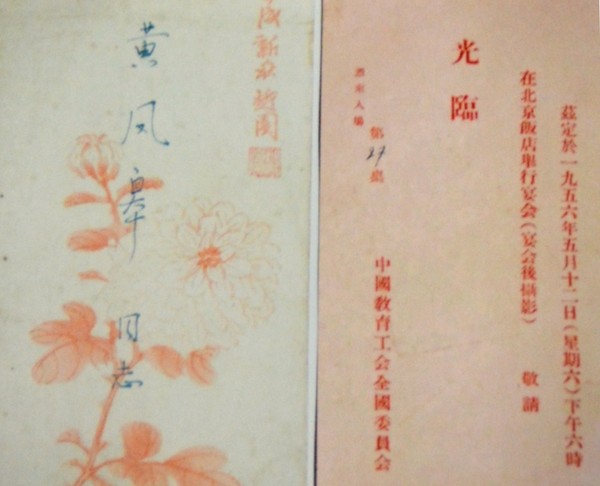 黄凤皋 同志
茲定於一九五六年五月十二日(星期六)下午六時
在北京飯店舉行宴会(宴会後攝影) 敬請
光臨
中國教育工会全國委員会
第27桌
憑柬入場